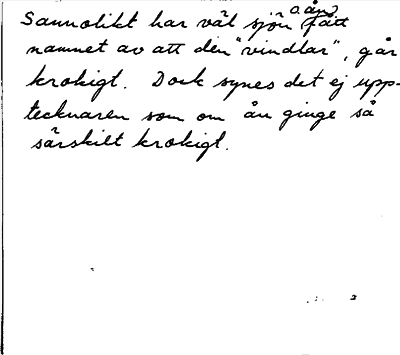 Sannolikt har väl sjön o. ån? fått
namnet av att den "vindlar", går
krokigt. Dock synes det ej upp-
tecknaren som om ån ginge så
särskilt krokigt.